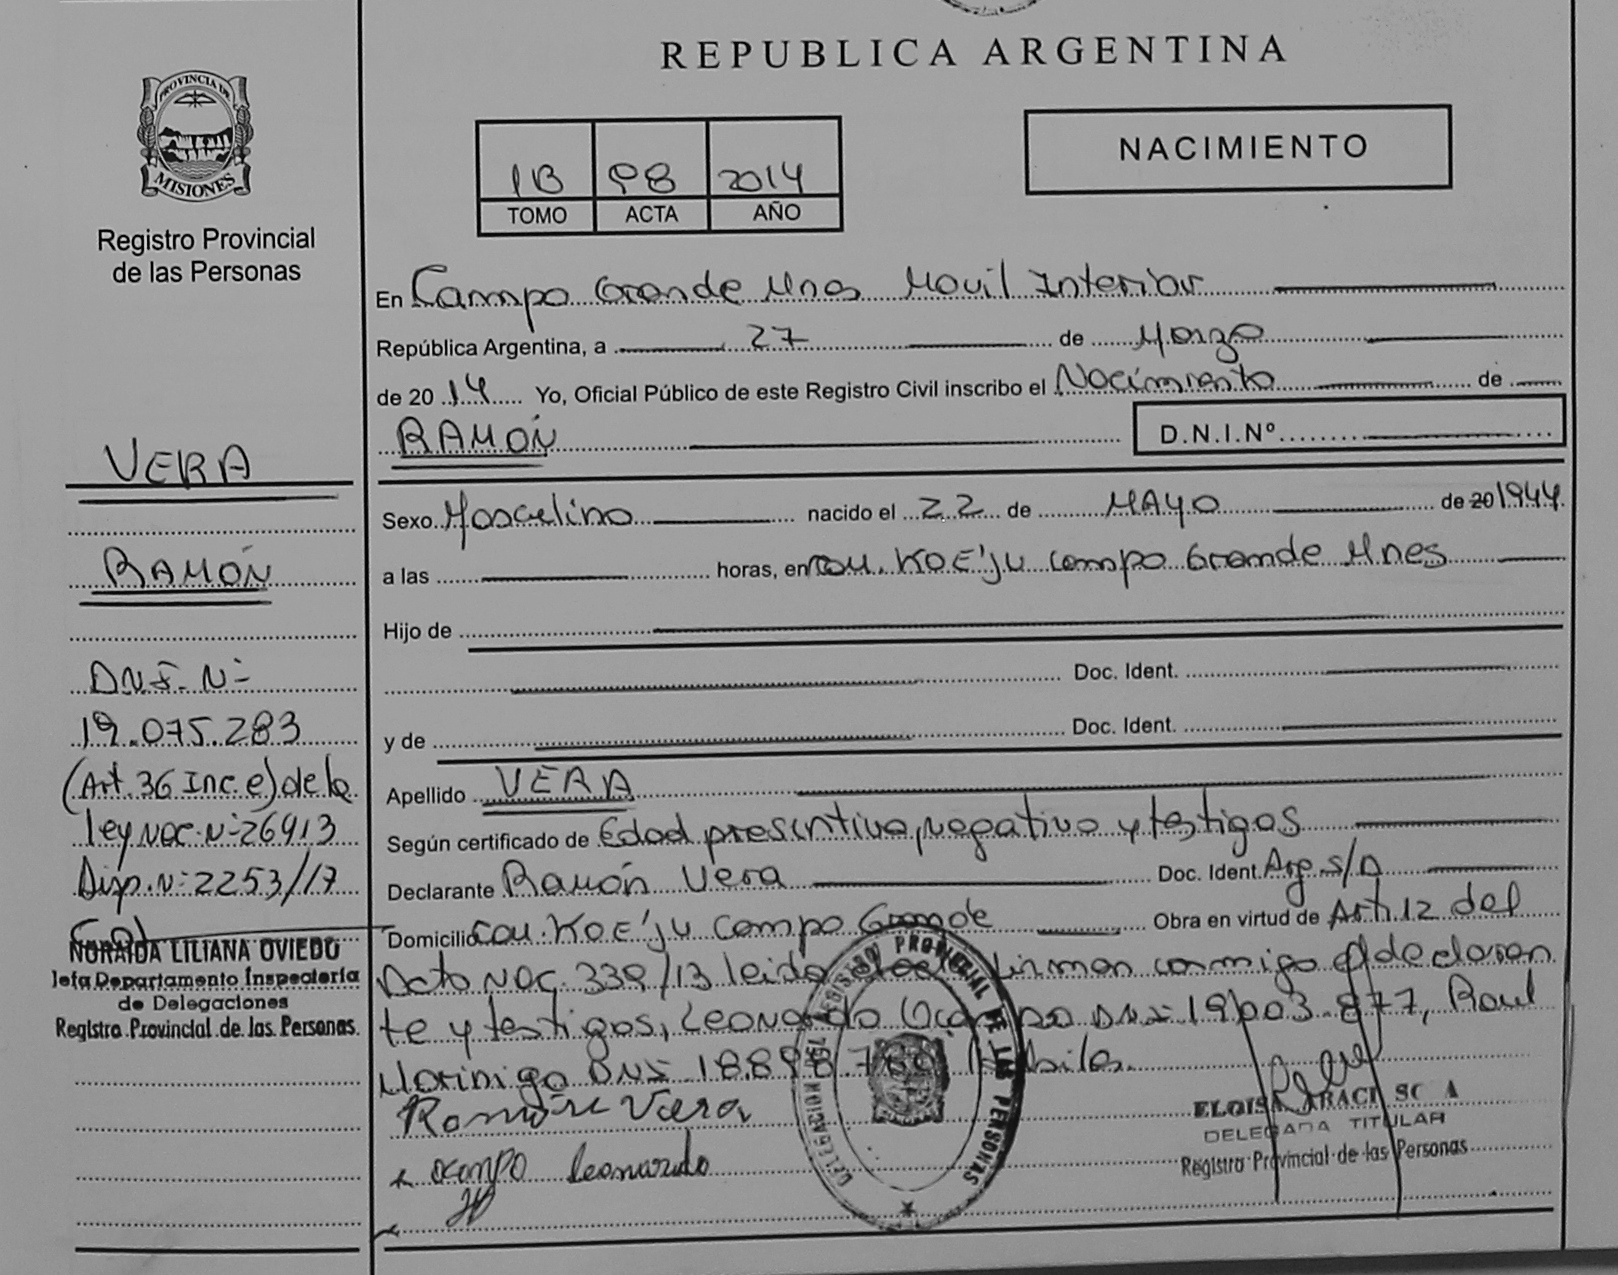 REPUBLICA ARGENTINA
PROVINCIA DE
MISIONES
Registro Provincial
de las Personas
1B 98 2014
TOMO ACTA AÑO
NACIMIENTO
VERA
RAMÓN
DNI-Nº
19.075.283
(Art.36 Inc.e) de la
ley Nac.Nº26913
Disp.Nº2253/17
NORAIDA LILIANA OVIEDO
Jefa Departamento Inspectoría
de Delegaciones
Registro Provincial de las Personas.
En Campo Grande Mnes Movil Interior
República Argentina, a 27 de Marzo
de 20 14 Yo, Oficial Público de este Registro Civil inscribo el Nacimiento de
RAMÓN D.N.I.Nº
Sexo Masculino nacido el 22 de MAYO de 20 1944
a las horas, en Com. KOE'JU Campo Grande Mnes
Hijo de
Doc. Ident.
y de Doc. Ident.
Apellido VERA
Según certificado de Edad presuntiva, negativo y testigos
Declarante Ramón Vera Doc. Ident. Arg. S/D
Domicilio Com. KOE'JU Campo Grande Obra en virtud de Art. 12 del
Dcto Nac. 339/13 leida el acta firman conmigo el declaran
te y testigos, Leonardo Ocampo DNI 19.003.877, Raul
Morinigo DNI 18.898.78 Habiles.
Ramón Vera
ocampo Leonardo
REGISTRO PROVINCIAL DE LAS PERSONAS
DELEGACION MOVIL
ELOISA ARACI SC A
DELEGADA TITULAR
Registro Provincial de las Personas